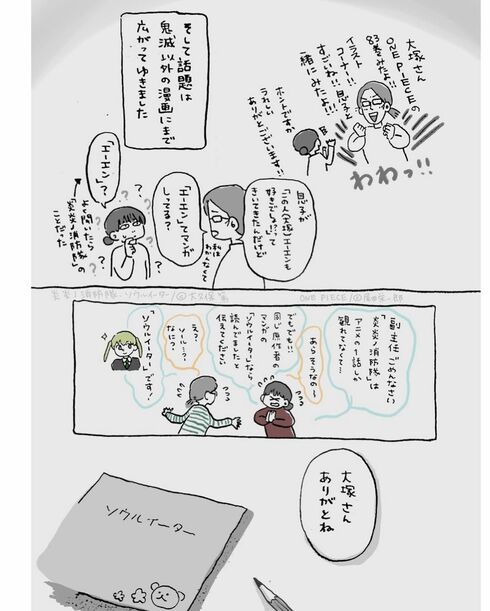 そして話題は
鬼滅以外の漫画にまで
広がってゆきました
大塚さん
ONE PIECEの
83巻みたよ!!
イラスト
コーナー!!
すごいね!!息子と
一緒にみたよ!!!
ホントですか
うれしい
ありがとございます!!
わわっ!!
息子が
「この人(大塚)エーエンも
好きでしょ??」って
きいてきたんだけど
「エーエン」てマンガ
してる?
私は
わかんなくて
「エーエン」?
?
?
?
?
?
よく聞いたら
「炎炎ノ消防隊」の
ことだった
炎炎ノ消防隊・ソウルイーター/@大久保篤
ONE PIECE/@尾田栄一郎
副主任ごめんなさい
「炎炎ノ消防隊」は
アニメの1話しか
観れてなくて…
あらそうなの〜
でもでも!!
同じ原作者の
マンガの
「ソウルイーター」なら
読んでましたと
伝えてください
え?
ソル…?
なに?
「ソウルイーター」です!
大塚さん
ありがとね
ソウルイーター